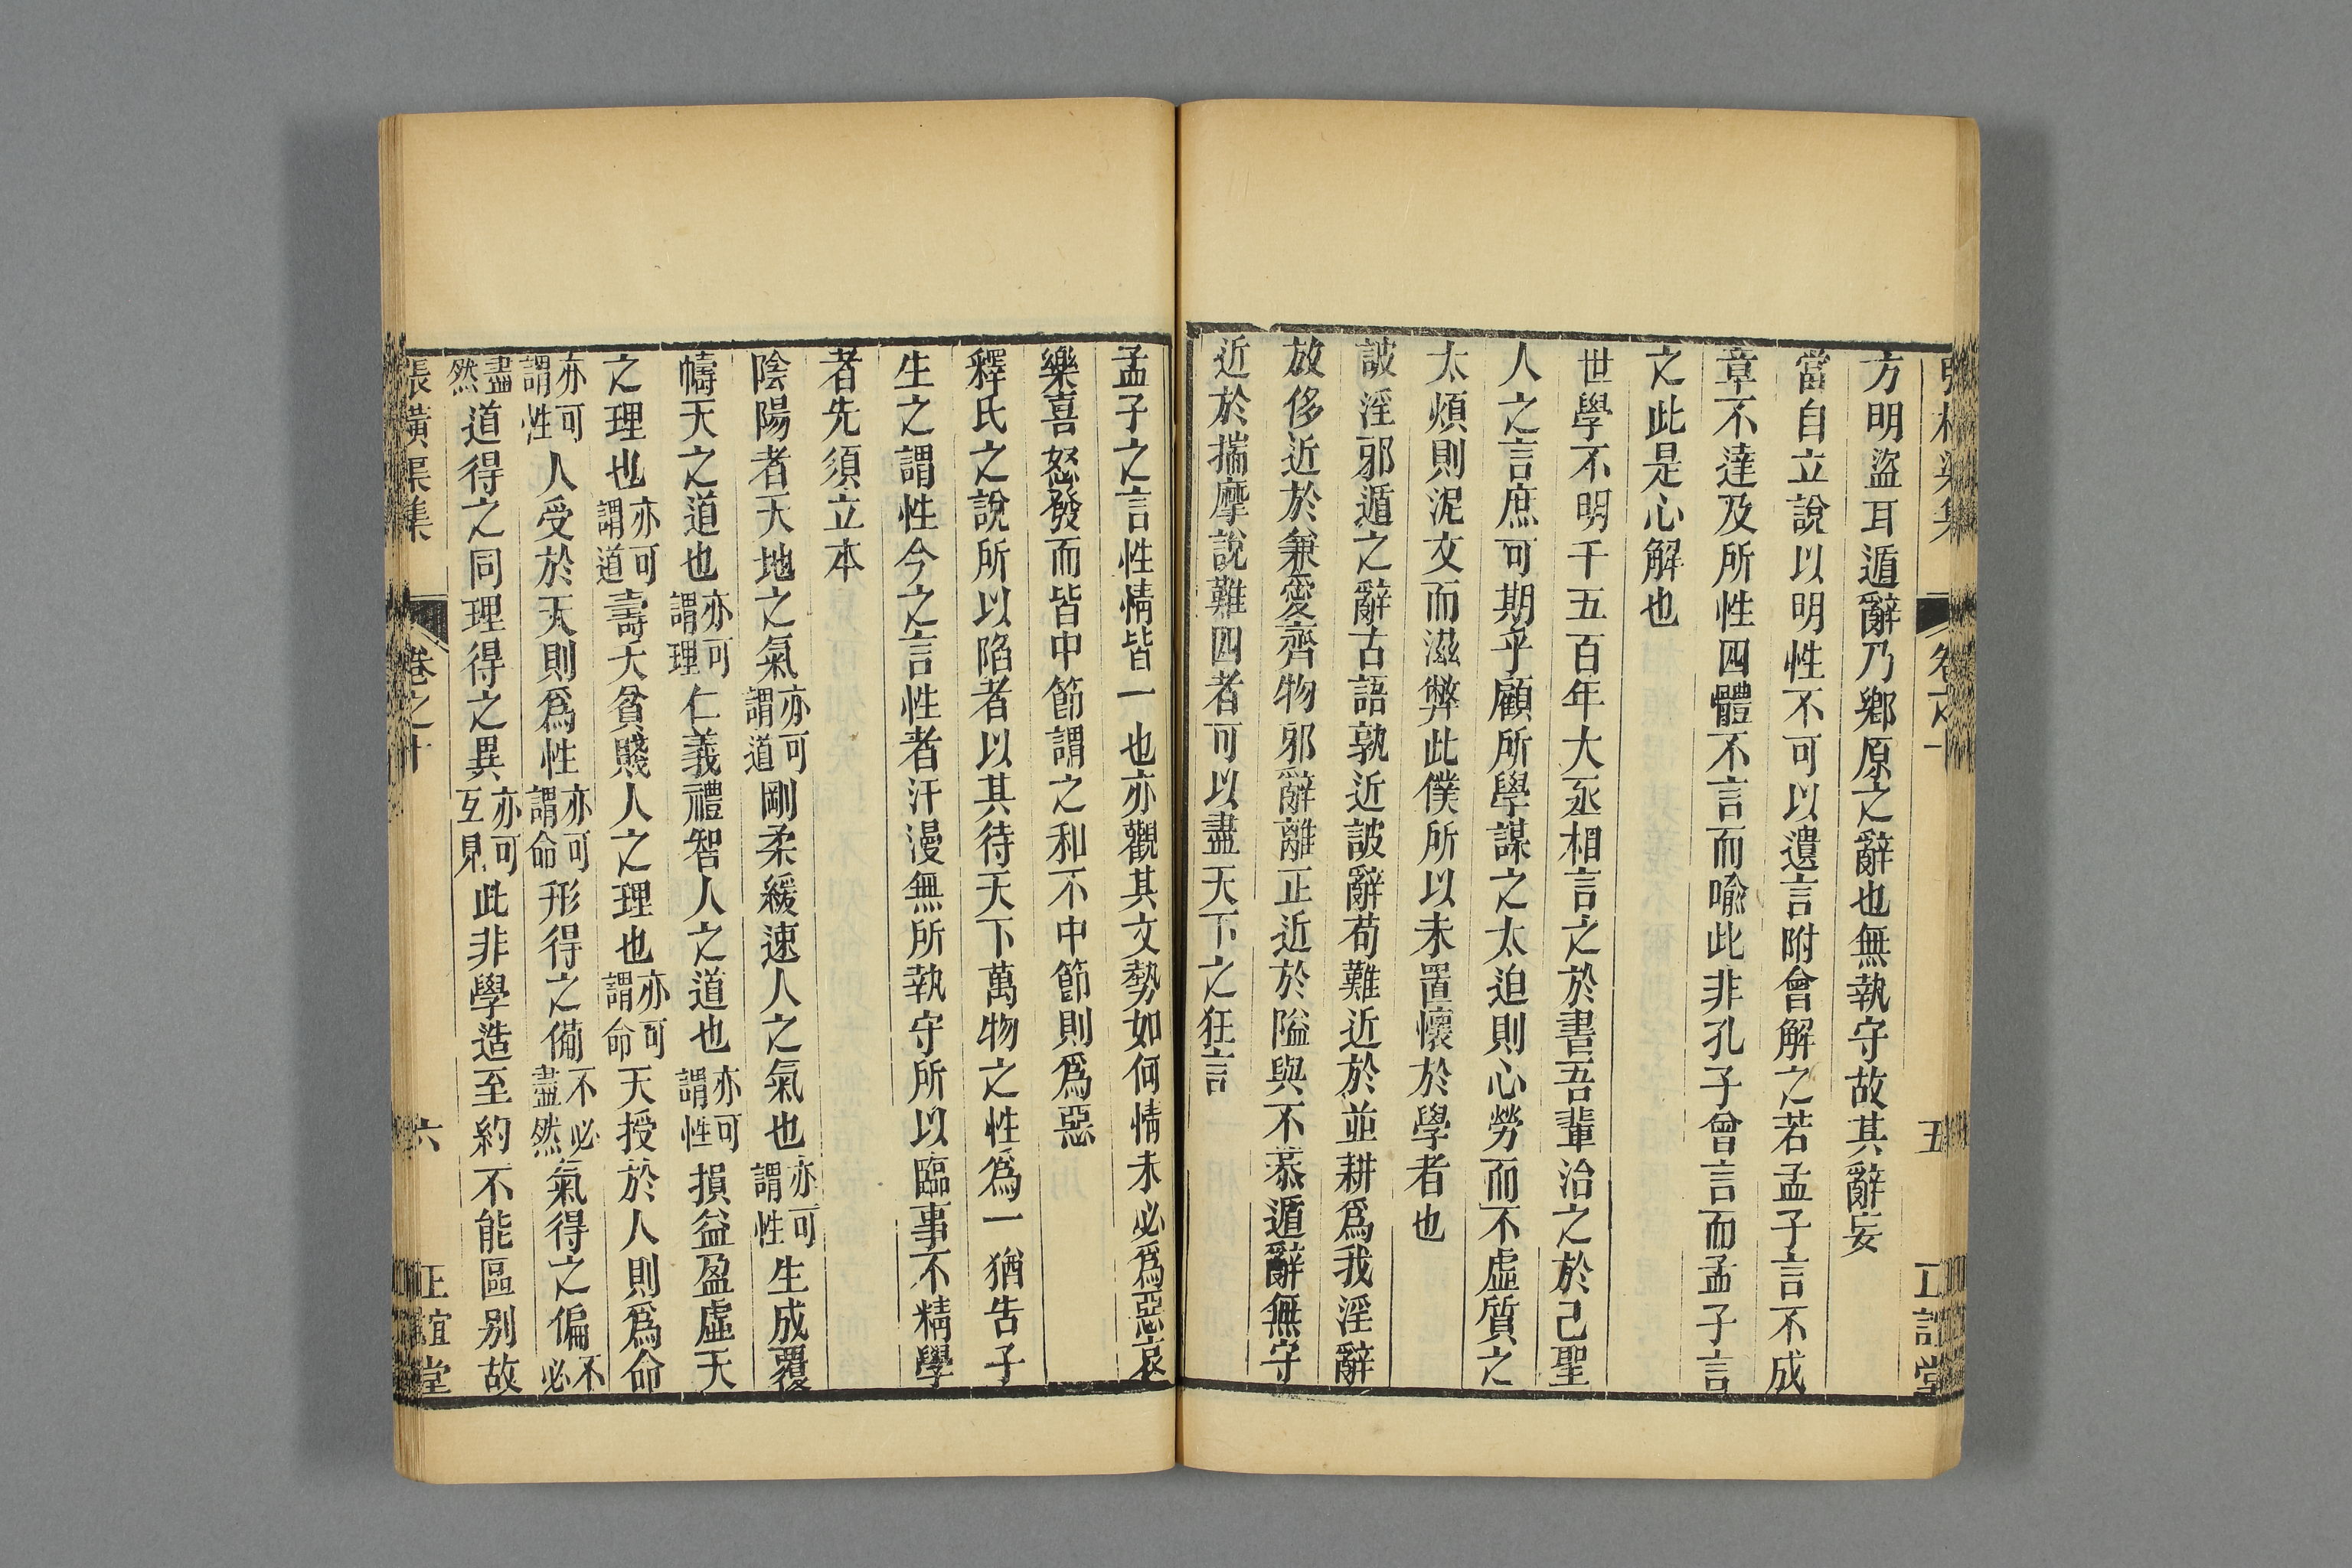 方明盜耳遁辭乃鄉原之辭也無執守故其辭妄
當自立說以明性不可以遺言附會解之若孟子言不成
章不達及所性四體不言而喻此非孔子曾言而孟子言
之此是心解也
世學不明千五百年大丞相言之於書吾輩治之於己聖
人之言庶可期乎顧所學謀之太迫則心勞而不虛質之
太煩則泥文而滋弊此僕所以未置懷於學者也
詖淫邪遁之辭古語孰近詖辭苟難近於並耕爲我淫辭
放侈近於兼愛齊物邪辭離正近於隘與不恭遁辭無守
近於揣摩說難四者可以盡天下之狂言
五
孟子之言性情皆一也亦觀其文勢如何情未必爲惡哀
樂喜怒發而皆中節謂之和不中節則爲惡
釋氏之說所以陷者以其待天下萬物之性爲一猶告子
生之謂性今之言性者汗漫無所執守所以臨事不精學
者先須立本
陰陽者天地之氣亦可謂道剛柔緩速人之氣也亦可謂性生成覆
幬天之道也亦可謂理仁義禮智人之道也亦可謂性損益盈虛天
之理也亦可謂道壽夭貧賤人之理也亦可謂命天授於人則爲命
亦可謂性人受於天則爲性亦可謂命形得之備不必盡然氣得之偏不必
盡然道得之同理得之異亦可互見此非學造至約不能區別故
張橫渠集 卷之十 六 正誼堂